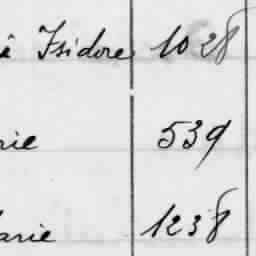 Isidore 1028
rie 539
arie 1238